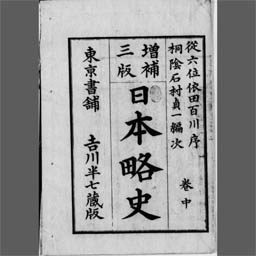 從六位依田百川序
桐陰石村貞一編次
卷中
增補
三版
日本略史
東京書舖
吉川半七藏版